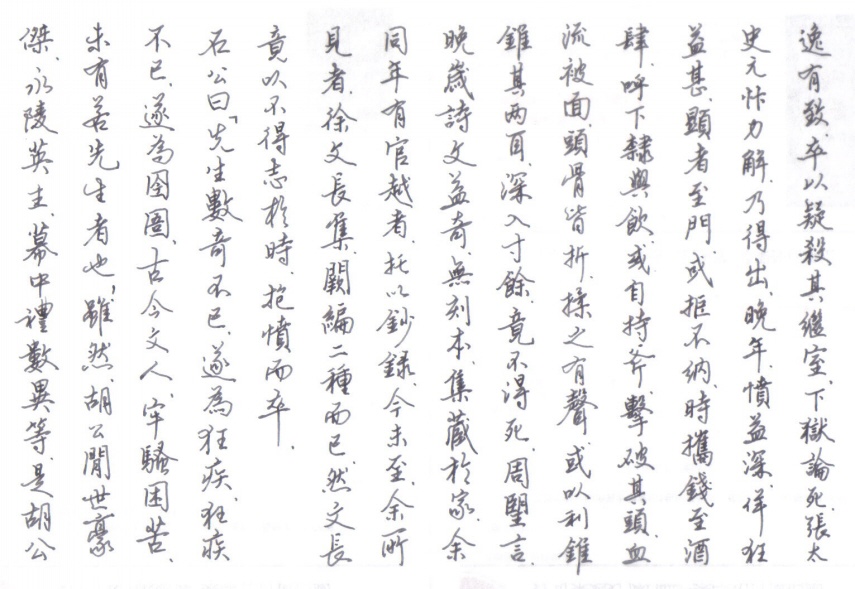 逸有致、卒以疑殺其繼室、下獄論死、張太
史元忭力解、乃得出、晚年、憤益深、佯狂
益甚、顯者至門、或拒不納、時攜錢至酒
肆、呼下隸與飲、或自持斧、擊破其頭、血
流被面、頭骨皆折、揉之有聲、或以利錐
錐其兩耳、深入寸餘、竟不得死、周望言、
晚歲詩文益奇、無刻本、集藏於家、余
同年有官越者、托以鈔錄、今未至、余所
見者、徐文長集、闕編二種而已、然文長
竟以不得志於時、抱憤而卒、
石公曰「先生數奇不已、遂為狂疾、狂疾
不已、遂為囹圄、古今文人、牢騷困苦、
未有若先生者也、」雖然、胡公閒世豪
傑、永陵英主、幕中禮數異等、是胡公